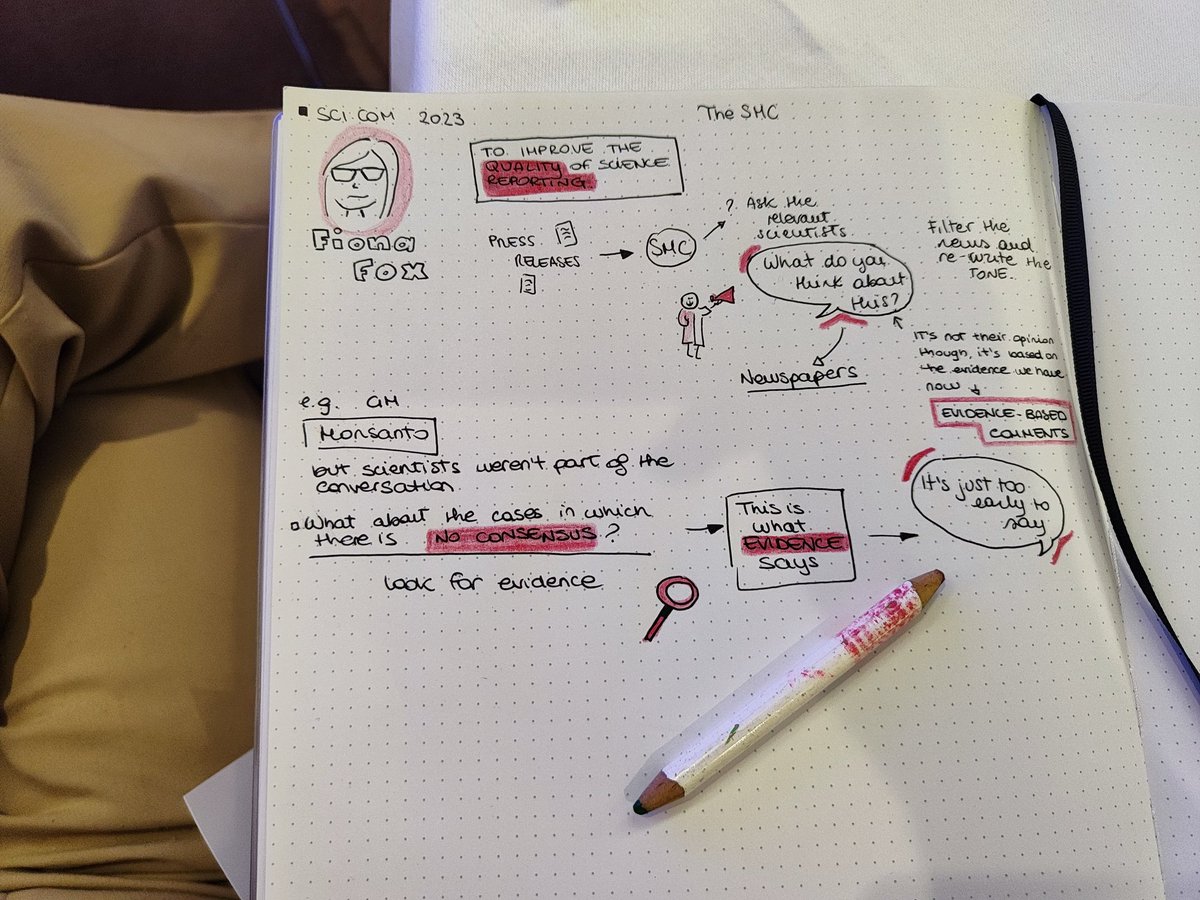 SCI COM 2023
The SMC
Fiona
Fox
TO IMPROVE THE
QUALITY OF SCIENCE
REPORTING.
PRESS
RELEASES
SMC
? Ask the
relevant
scientists.
What do you
think about
this?
Newspapers
Filter the
news and
re-write the
TONE.
It's not their opinion
though, it's based on
the evidence we have
now
EVIDENCE-BASED
COMMENTS
e.g. GM
Monsanto
but scientists weren't part of the
conversation.
What about the cases in which
there is NO CONSENSUS?
look for evidence
This is
what
EVIDENCE
says
It's just too
early to
say